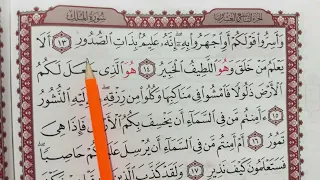 الجزء التاسع والعشرون سُورَةُ المُلْكِ
وَأَسِرُّواْ قَوْلَكُمْ أَوِ ٱجْهَرُواْ بِهِۦٓ إِنَّهُۥ عَلِيمٌۢ بِذَاتِ ٱلصُّدُورِ ١٣ أَلَا
يَعْلَمُ مَنْ خَلَقَ وَهُوَ ٱللَّطِيفُ ٱلْخَبِيرُ ١٤ هُوَ ٱلَّذِى جَعَلَ لَكُمُ
ٱلْأَرْضَ ذَلُولًا فَٱمْشُواْ فِى مَنَاكِبِهَا وَكُلُواْ مِن رِّزْقِهِۦ وَإِلَيْهِ ٱلنُّشُورُ
١٥ ءَأَمِنتُم مَّن فِى ٱلسَّمَآءِ أَن يَخْسِفَ بِكُمُ ٱلْأَرْضَ فَإِذَا هِىَ
تَمُورُ ١٦ أَمْ أَمِنتُم مَّن فِى ٱلسَّمَآءِ أَن يُرْسِلَ عَلَيْكُمْ حَاصِبًا
فَسَتَعْلَمُونَ كَيْفَ نَذِيرِ ١٧ وَلَقَدْ كَذَّبَ ٱلَّذِينَ